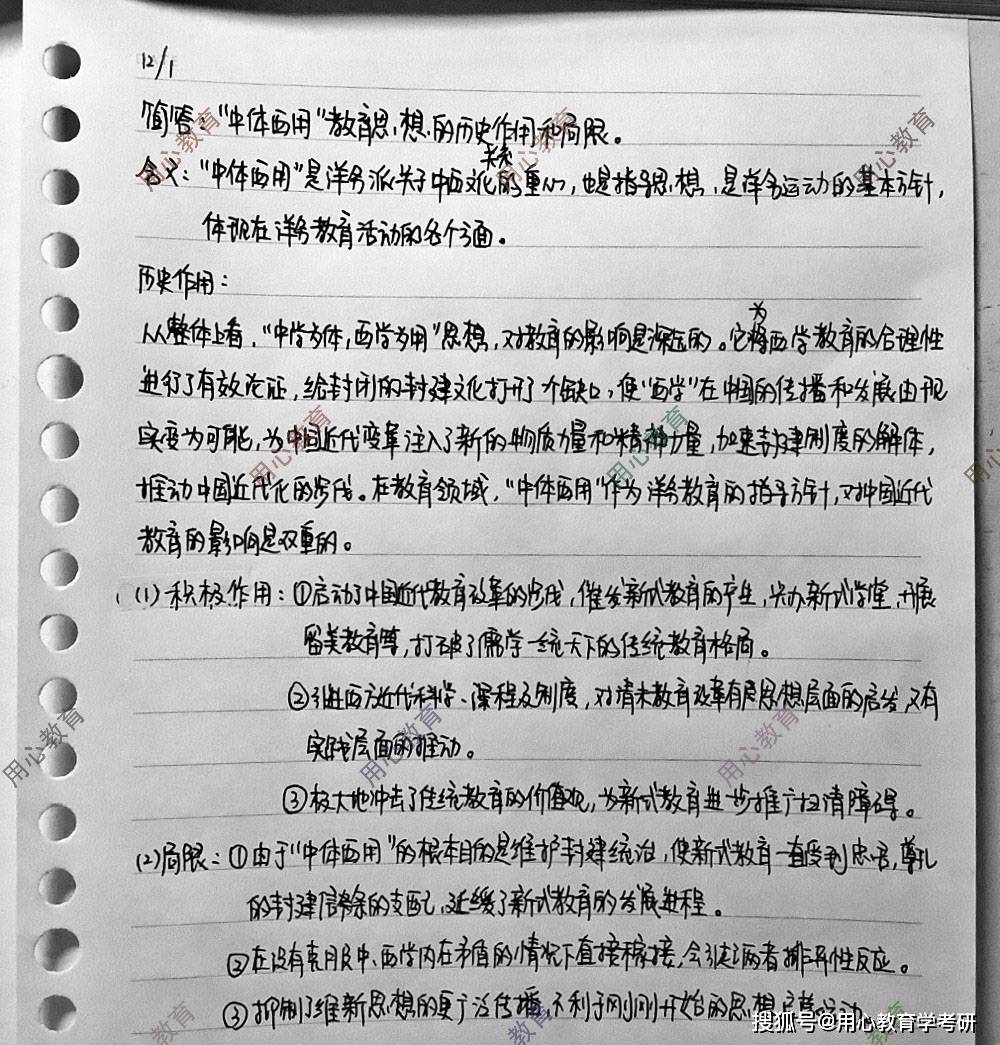 12/1
简答："中体西用"教育思想的历史作用和局限。
关系
含义："中体西用"是洋务派关于中西文化的重心，也是指导思想，是洋务运动的基本方针，
体现在洋务教育活动的各个方面。
历史作用：
为
从整体上看，"中学为体，西学为用"思想，对教育的影响是深远的。它将西学教育的合理性
进行了有效论证，给封闭的封建文化打开了个缺口，使"西学"在中国的传播和发展由现
实变为可能，为中国近代变革注入了新的物质力量和精神力量，加速封建制度的解体，
推动中国近代化的步伐。在教育领域，"中体西用"作为洋务教育的指导方针，对中国近代
教育的影响是双重的。
(1) 积极作用：①启动了中国近代教育改革的步伐，催发新式教育的产生，兴办新式学堂，开展
留美教育等，打破了儒学一统天下的传统教育格局。
②引进西方近代科学、课程及制度，对清末教育改革有思想层面的启发，又有
实践层面的推动。
③极大地冲击了传统教育的价值观，为新式教育进一步推广扫清障碍。
(2)局限：①由于"中体西用"的根本目的是维护封建统治，使新式教育一直受到忠君，尊孔
的封建信条的支配，延缓了新式教育的发展进程。
②在没有克服中、西学内在矛盾的情况下直接嫁接，会引起两者排异性反应。
③抑制了维新思想的更广泛传播，不利于刚刚开始的思想启蒙运动。
用心教育
用心教育
用心教育
用心教育
用心教育
用心教育
用心教育
用心教育
搜狐号@用心教育学考研